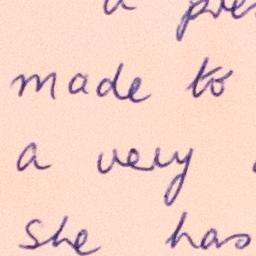 a
made to
a very
She has